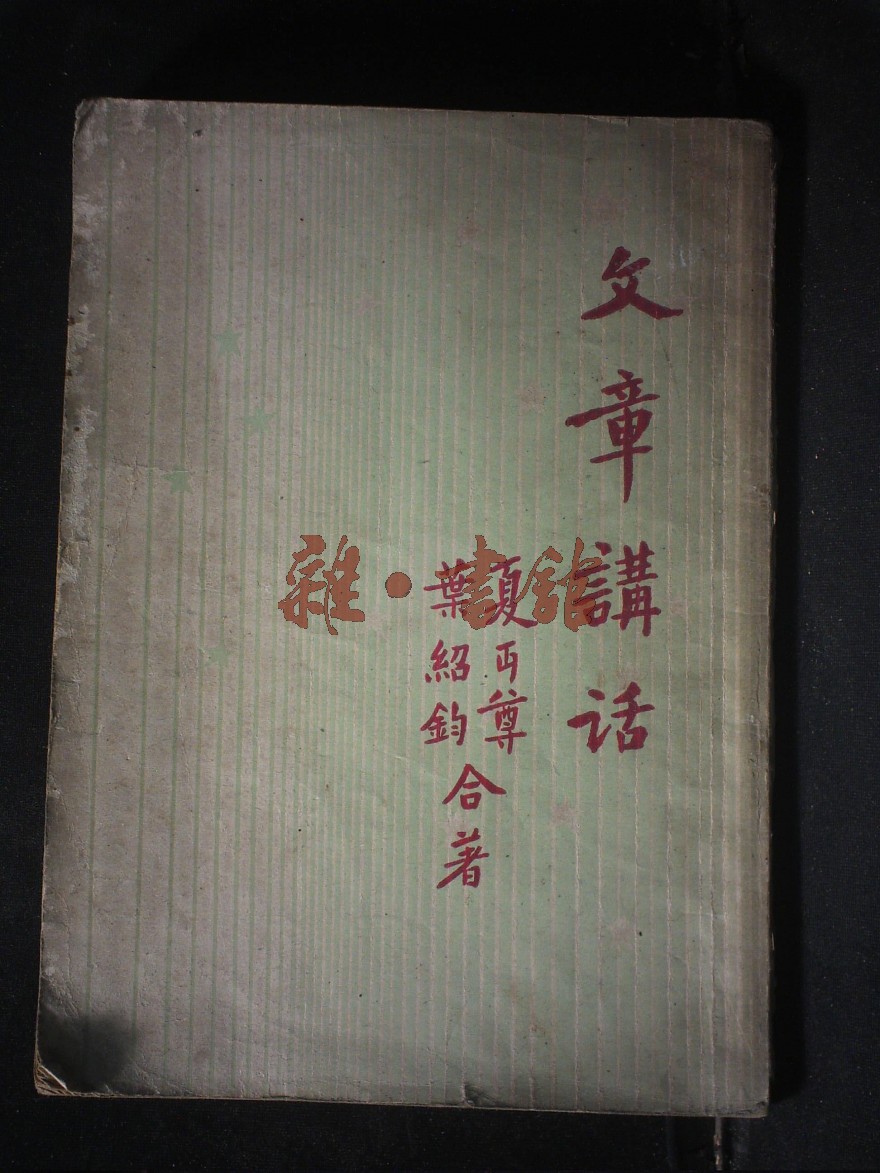 文章講话
夏丏尊
葉紹鈞
合著
雜·書館